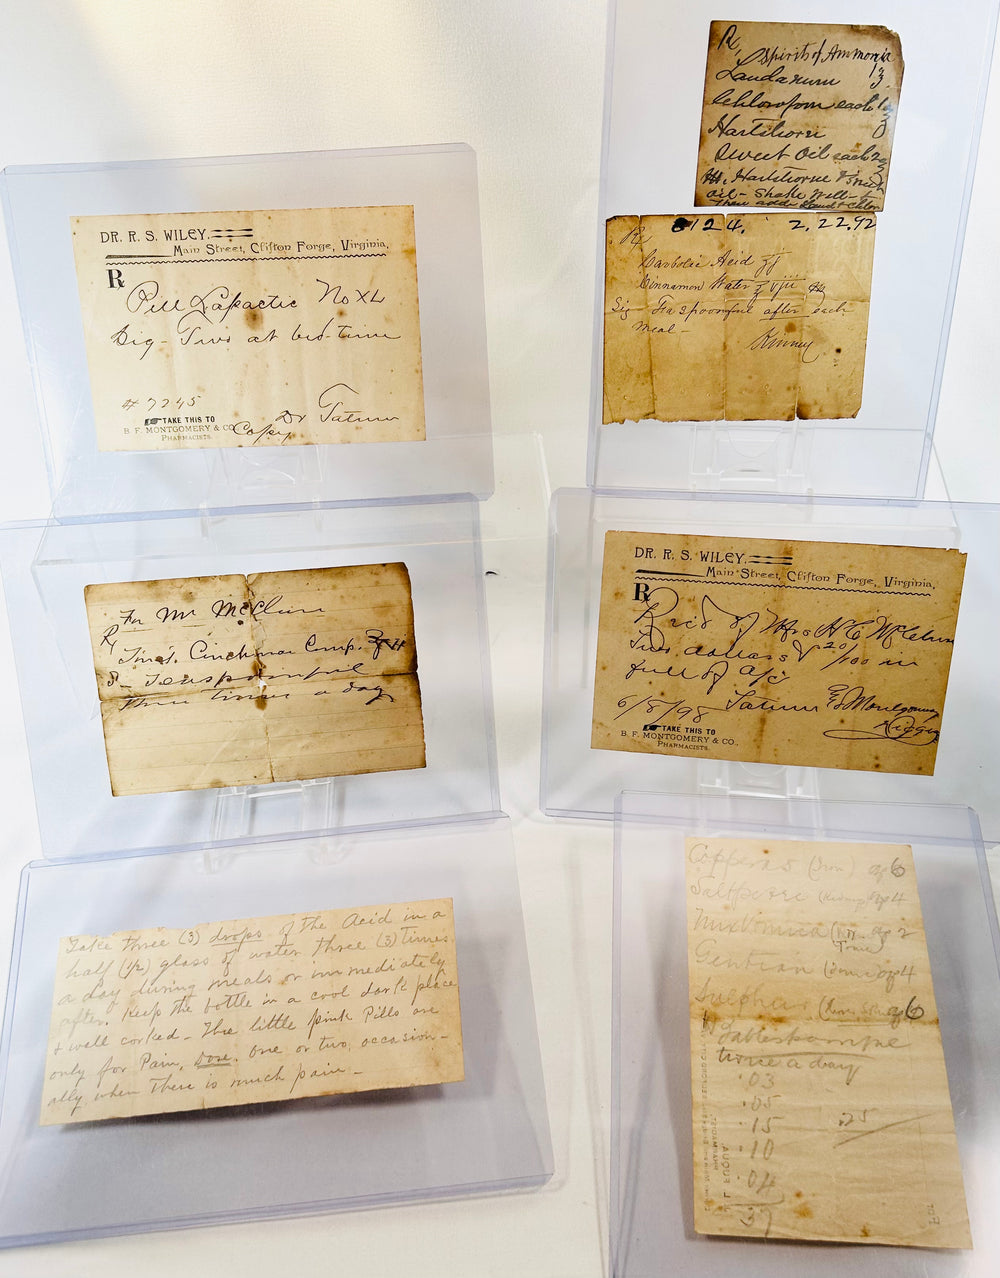 DR. R. S. WILEY.
Main Street, Clifton Forge, Virginia,
℞
Pill Lapactic No XL
Sig - Two at bed-time
# 7245
TAKE THIS TO
B. F. MONTGOMERY & CO.
PHARMACISTS.
Dr Tatum
Copy
℞ Spirits of Ammonia
Laudanum
Chloroform each
Hartshorn
Sweet Oil each
Hartshorne & Sweet
oil - Shake Well -
then add Laud & Chlor
6124. 2.22.92
℞
Carbolic Acid
Cinnamon Water
Sig - Tea spoonful after each
meal -
Kinney
For Mr McClure
℞
Tinct. Cinchonae Comp.
S - Teaspoonful
three times a day
DR. R. S. WILEY.
Main Street, Clifton Forge, Virginia,
℞
Rec'd of Mrs H C McClure
Two dollars & 20/100 in
full of a/c
6/8/98 Tatum Montgomery
TAKE THIS TO
B. F. MONTGOMERY & CO.,
PHARMACISTS.
Take three (3) drops of the Acid in a
half (1/2) glass of water three (3) times
a day during meals or immediately
after. Keep the bottle in a cool dark place
& well corked - The little pink Pills are
only for Pain, Dose, one or two, occasion-
ally, when there is much pain -
Copperas (Iron) 6
Saltpetre 4
Nux Vomica 2
Gentian 4
Sulphur 6
Tablespoonful
twice a day
.03
.05
.15 .25
.10
.04
37
L. FUQUA
PHARMACIST
For